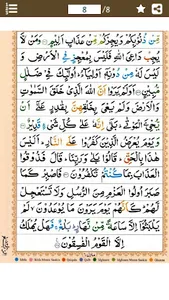 8 /8
مِّنْ ذُنُوْبِكُمْ وَيُجِرْكُمْ مِّنْ عَذَابٍ اَلِيْمٍ وَمَنْ لَّا
يُجِبْ دَاعِيَ اللّٰهِ فَلَيْسَ بِمُعْجِزٍ فِي الْاَرْضِ وَ
لَيْسَ لَهٗ مِنْ دُوْنِهٖۤ اَوْلِيَآءُ ؕ اُولٰٓئِكَ فِيْ ضَلٰلٍ
مُّبِيْنٍ اَوَلَمْ يَرَوْا اَنَّ اللّٰهَ الَّذِيْ خَلَقَ السَّمٰوٰتِ
وَالْاَرْضَ وَلَمْ يَعْيَ بِخَلْقِهِنَّ بِقٰدِرٍ عَلٰٓى اَنْ
يُّحْيِۦَ الْمَوْتٰى ؕ بَلٰٓى اِنَّهٗ عَلٰى كُلِّ شَيْءٍ قَدِيْرٌ
وَيَوْمَ يُعْرَضُ الَّذِيْنَ كَفَرُوْا عَلَى النَّارِ ؕ اَلَيْسَ
هٰذَا بِالْحَقِّ ؕ قَالُوْا بَلٰى وَرَبِّنَا ؕ قَالَ فَذُوْقُوا
الْعَذَابَ بِمَا كُنْتُمْ تَكْفُرُوْنَ فَاصْبِرْ كَمَا
صَبَرَ اُولُوا الْعَزْمِ مِنَ الرُّسُلِ وَلَا تَسْتَعْجِلْ
لَّهُمْ ؕ كَاَنَّهُمْ يَوْمَ يَرَوْنَ مَا يُوْعَدُوْنَ ۙ لَمْ
يَلْبَثُوْۤا اِلَّا سَاعَةً مِّنْ نَّهَارٍ ؕ بَلٰغٌ ۚ فَهَلْ يُهْلَكُ
اِلَّا الْقَوْمُ الْفٰسِقُوْنَ